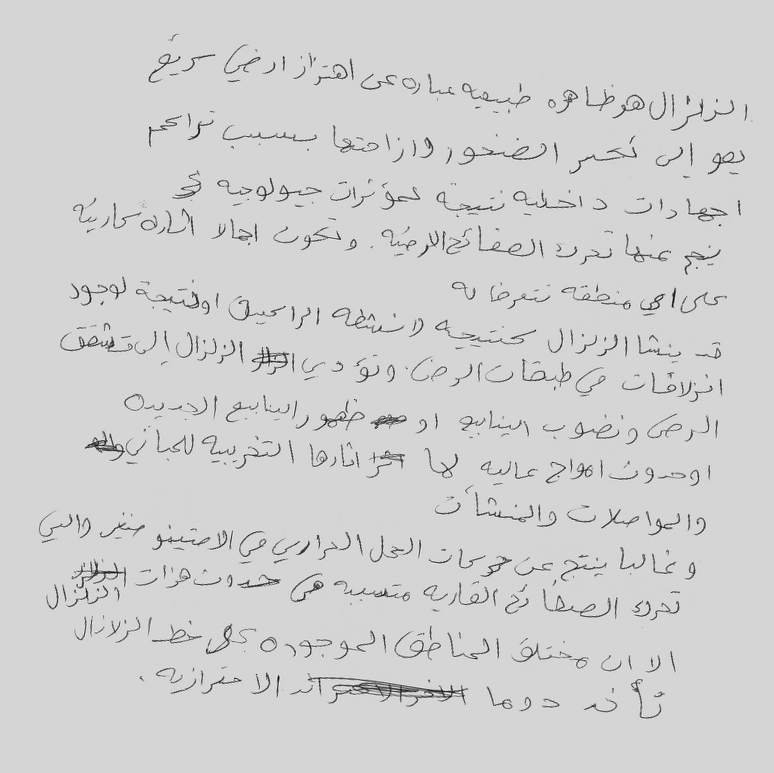 الزلزال هو ظاهره طبيعيه عباره عن اهتزاز ارضي سريع
يعو إلى تكسر الصخور وازاحتها بسبب تراكم
اجهادات داخليه نتيجة لمؤثرات جيولوجيه
ينجم عنها تحرك الصفائح الارضيه. وتكون اجمالا اثاره كارثيه
على اي منطقه تتعرضا له
قد ينشا الزلزال كنتيجه لانشطه البراكين او نتيجة لوجود
انزلاقات في طبقات الرض. وتؤدي الزلزال إلى تشقق
الرض ونضوب الينابيع او ظهور الينابيع الجديده
او حدوث امواج عاليه لها اثارها التخريبيه للمباني
والمواصلات والمنشأت
وغالبا ينتج عن حركات الحمل الحراري في والتي
تحرك الصفائح القاريه متسببه في حدوث هزات الزلزال
الا ان مختلف المناطق الموجوده على خط الزلازال
تأخد دوما الاحترازيه.